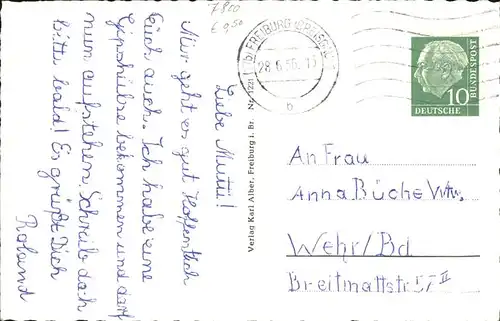 7850
€ 9,50
FREIBURG (BREISGAU)
28.6.56.-13
b
10
DEUTSCHE
BUNDESPOST
Liebe Mutti!
Mir geht es gut. Hoffentlich
Euch auch. Ich habe eine
Gipshülse bekommen und darf
nun aufstehen. Schreib doch
bitte bald! Es grüßt Dich
Roland
Verlag Karl Alber, Freiburg i. Br.
An Frau
Anna Büche Wtw.
Wehr/Bd
Breitmattstr